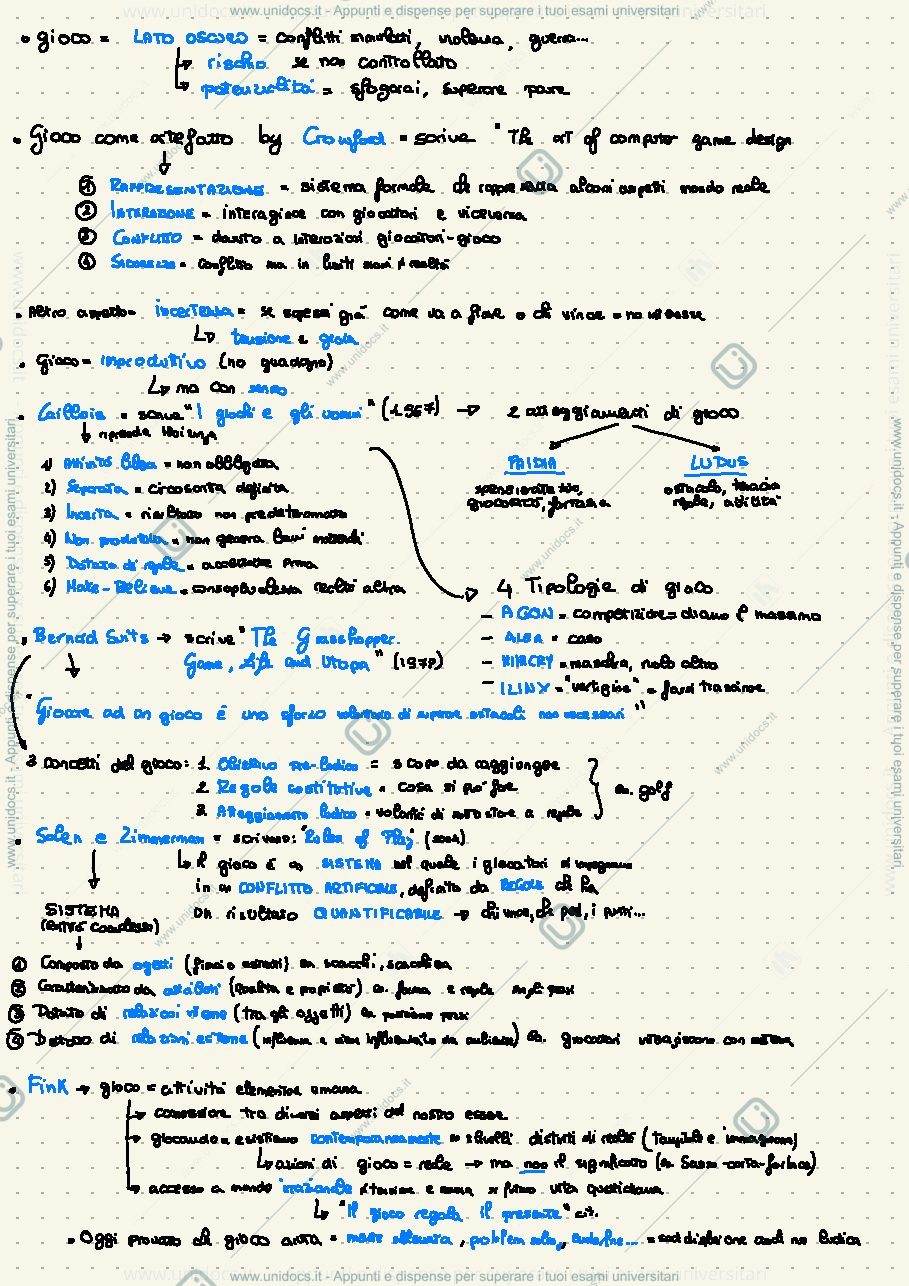 www.unidocs.it - Appunti e dispense per superare i tuoi esami universitari
• gioco = LATO OSCURO = conflitti, violenza, guerra...
↳ rischio se non controllato
↳ potenzialità = sfogarsi, superare paure
• Gioco come artefatto by Crawford = scrive "The art of computer game design
↓
① RAPPRESENTAZIONE = sistema formale che rappresenta alcuni aspetti mondo reale
② INTERAZIONE = interagisce con giocatori e viceversa
③ CONFLITTO = dovuto a interazioni giocatori-gioco
④ SICUREZZA = conflitto ma in limiti
• Altro aspetto = INCERTEZZA = se sapessi già come va a finire o chi vince = no interesse
↳ tensione e gioia
• Gioco = improduttivo (no guadagno)
↳ ma con senso
• Caillois = scrive "I giochi e gli uomini" (1967) → 2 atteggiamenti di gioco
↓ riprende Huizinga
PAIDIA LUDUS
spensieratezza, giocosità, fantasia
ostacolo, tenacia regole, abilità
1) Attività libera = non obbligata
2) Separata = circoscritta definita
3) Incerta = risultato non predeterminato
4) Non produttiva = non genera beni materiali
5) Dotata di regole = accettate prima
6) Make-Believe = consapevolezza realtà altra
4 Tipologie di gioco
- AGON = competizione = diamo il massimo
- ALEA = caso
- MIMICRY = maschera, ruolo altro
- ILINX = "vertigine" = farsi trascinare
• Bernard Suits → scrive "The Grasshopper.
↓ Game, Life and Utopia" (1978)
"Giocare ad un gioco è uno sforzo volontario di superare ostacoli non necessari"
3 concetti del gioco: 1. Obiettivo pre-ludico = scopo da raggiungere
2. Regole costitutive = cosa si può fare
3. Atteggiamento ludico = volontà di sottostare a regole
es. golf
• Salen e Zimmerman = scrivono: "Rules of Play" (2004)
↳ Il gioco è un SISTEMA nel quale i giocatori si impegnano
in un CONFLITTO ARTIFICIALE, definito da REGOLE che ha
un risultato QUANTIFICABILE → chi vince, chi perde, i punti...
↓
SISTEMA
(entità complessa)
↓
① Composto da oggetti (fisici o astratti) es. scacchi, scacchiera
② Caratterizzato da attributi (qualità e proprietà) es. forma e regole sugli pezzi
③ Dotato di relazioni interne (tra gli oggetti) es. posizione pezzi
④ Dotato di relazioni esterne (influenza e viene influenzato da ambiente) es. giocatori interagiscono con sistema
• Fink → gioco = attività elementare umana
↳ connessione tra diversi aspetti del nostro essere
↳ giocando = esistono contemporaneamente = 2 livelli distinti di realtà (tangibile e immaginaria)
↳ azioni di gioco = reale → ma non il significato (es. Sasso-carta-forbice)
↳ accesso a mondo irrazionale vita quotidiana
↳ "Il gioco regala il presente" cit.
• Oggi provato che gioco aiuta = mente allenata, problem solv,
www.unidocs.it - Appunti e dispense per superare i tuoi esami universitari